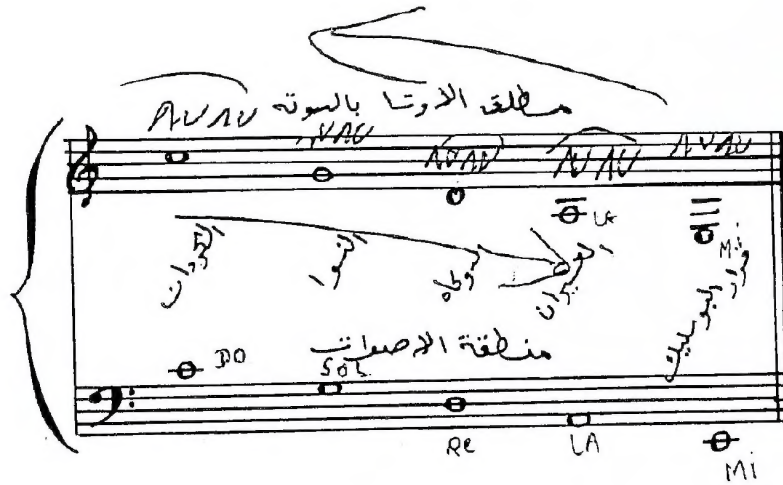 مطلق الاوتا بالنوته
ΛU ΛU ΛU ΛU ΛU ΛU ΛU ΛU ΛU ΛU
LA Mi
الكردان النوا الدوكاه العشيران قرار البوسليك
منطقة الاصوات
DO SOL
Re LA Mi